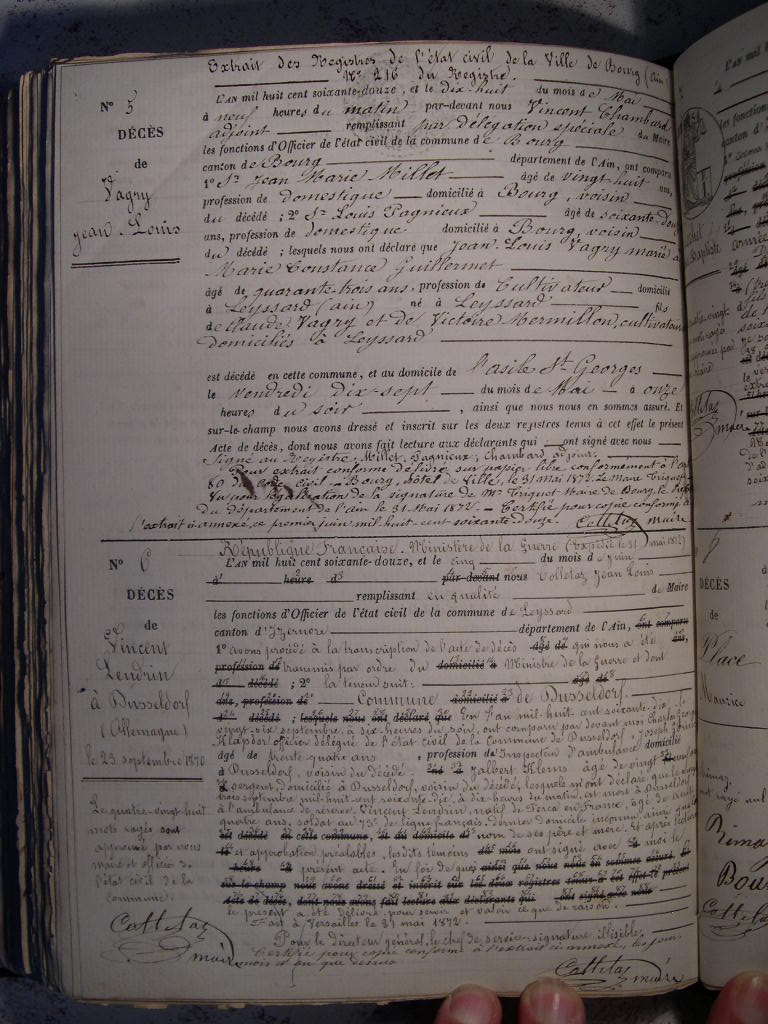 Extrait des Registres de l'état civil de la Ville de Bourg (Ain)
N° 216 du Registre.
N° 5
DÉCÈS
de
Vagry
Jean-Louis
L'AN mil huit cent soixante-douze, et le dix-huit du mois de Mai
à neuf heures du matin par-devant nous Vincent Chambard
adjoint remplissant par délégation spéciale du Maire
les fonctions d'Officier de l'état civil de la commune de Bourg
canton de Bourg département de l'Ain, ont comparu
1° Sr Jean Marie Millet âgé de vingt-huit ans,
profession de domestique domicilié à Bourg, voisin
du décédé ; 2° Sr Louis Pagnieux âgé de soixante-dou
ans, profession de domestique domicilié à Bourg, voisin
du décédé ; lesquels nous ont déclaré que Jean-Louis Vagry marié à
Marie Constance Guillermet
âgé de quarante-trois ans, profession de Cultivateur domicilié
à Leyssard (ain) né à Leyssard fils
de Claude Vagry et de Victoire Mermillon, cultivateurs
domiciliés à Leyssard
est décédé en cette commune, et au domicile de l'asile St Georges
le vendredi dix-sept du mois de Mai à onze
heures du soir, ainsi que nous nous en sommes assuré. Et
sur-le-champ nous avons dressé et inscrit sur les deux registres tenus à cet effet le présent
Acte de décès, dont nous avons fait lecture aux déclarants qui ont signé avec nous
Signé au Registre, Millet, Pagnieux, Chambard adjoint.
Pour extrait conforme délivré sur papier libre conformément à l'art
80 du code civil. Bourg, hôtel de Ville, le 31 mai 1872. Le Maire Triquet
Vu pour légalisation de la signature de Mr Triquet Maire de Bourg, le Préfet
du département de l'ain le 31 Mai 1872. Certifié pour copie conforme à
l'extrait ci annexé, ce premier juin mil huit cent soixante-douze. Collétaz maire
N° 6
DÉCÈS
de
Vincent
Lendrin
à Dusseldorf
(Allemagne)
le 23 septembre 1870
Le quatre-vingt-huit
mots rayés sont
approuvés par nous
maire et officier de
l'état civil de la
commune.
Collétaz
maire
République Française. Ministère de la Guerre (Expédié le 31 mai 1872)
L'AN mil huit cent soixante-douze, et le cinq du mois de juin
à heure de par-devant nous Colletaz Jean Louis
remplissant en qualité de Maire
les fonctions d'Officier de l'état civil de la commune de Leyssard
canton d'Izernore département de l'Ain, ont comparu
1° avons procédé à la transcription de l'acte de décès âgé de qui nous a été ans,
profession de transmis par ordre du domicilié à Ministre de la Guerre et dont
décédé ; 2° la teneur suit : âgé de
ans, profession de Commune domicilié à de Dusseldorf.
décédé ; lesquels nous ont déclaré que En l'an mil-huit-cent soixante-dix, le
vingt-six septembre, à six heures du soir, ont comparu par devant moi Charles
Klapdor officier délégué de l'état civil de la Commune de Dusseldorf, Joseph
âgé de trente quatre ans, profession d'Inspecteur d'ambulance domicilié
à Dusseldorf, voisin du décédé. 2° Albert Kleins âgé de vingt
sergent, domicilié à Dusseldorf, voisin du décédé, lesquels m'ont déclaré que le
trois septembre mil-huit-cent soixante-dix, à dix heures du matin, est mort à Dusseldorf
à l'ambulance de réserve, Vincent Lendrin, natif de Serca en France, âgé de
quatre ans, soldat au 73e de ligne français, dernier domicile inconnu, ainsi que
est décédé en cette commune, et au domicile de nom de ses père et mère. Et après lecture
et approbation préalables, lesdits témoins ont signé avec moi le
heure présent acte. En foi de quoi ainsi que nous nous en sommes assuré. Et
sur-le-champ nous avons dressé et inscrit sur les deux registres tenus à cet effet le présent
Acte de décès, dont nous avons fait lecture aux déclarants qui ont signé avec nous
le présent a été délivré pour servir et valoir ce que de raison.
Fait à Versailles le 31 mai 1872.
Pour le directeur général, le chef de service - signature illisible.
Certifié pour copie conforme à l'extrait ci annexé, les jour,
mois et an que dessus.
Collétaz maire
DÉCÈS
de
Place
Maurice